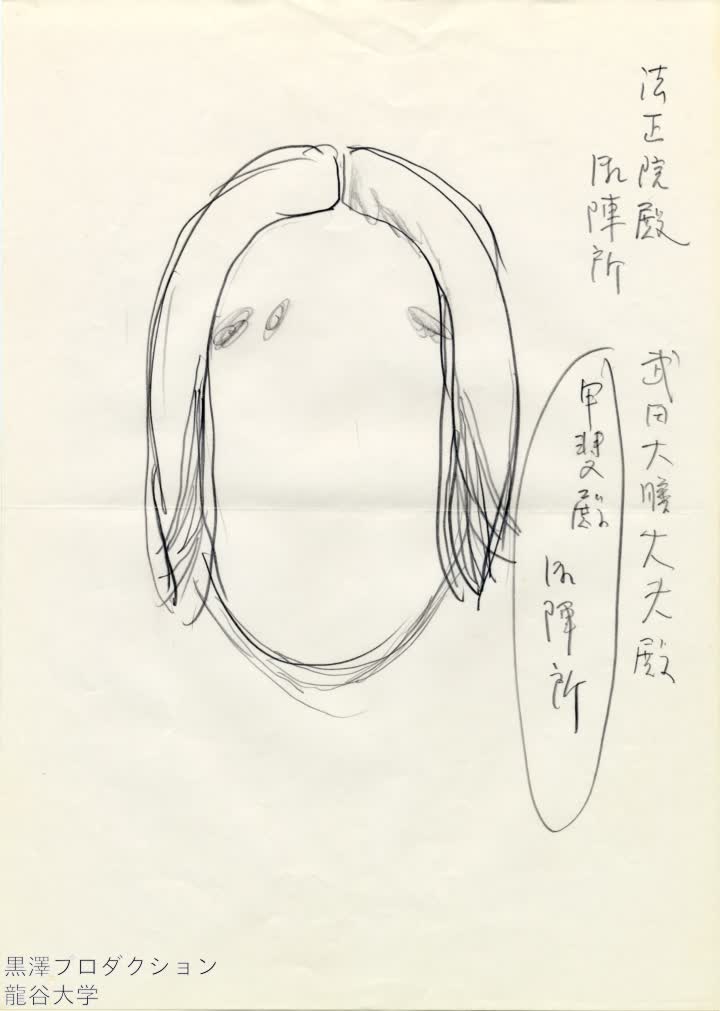 法正院殿
御陣所
武田大膳大夫殿
甲斐殿 御陣所
黒澤プロダクション
龍谷大学